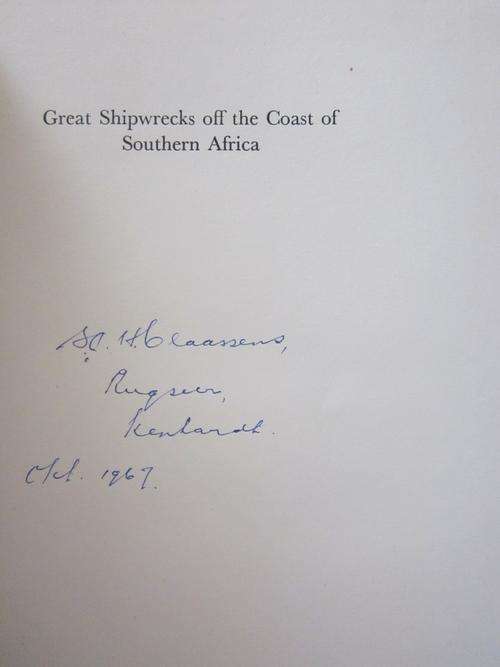 Great Shipwrecks off the Coast of
Southern Africa
H. Claassens,
Rugseer,
Kenhardt.
Oct. 1967.